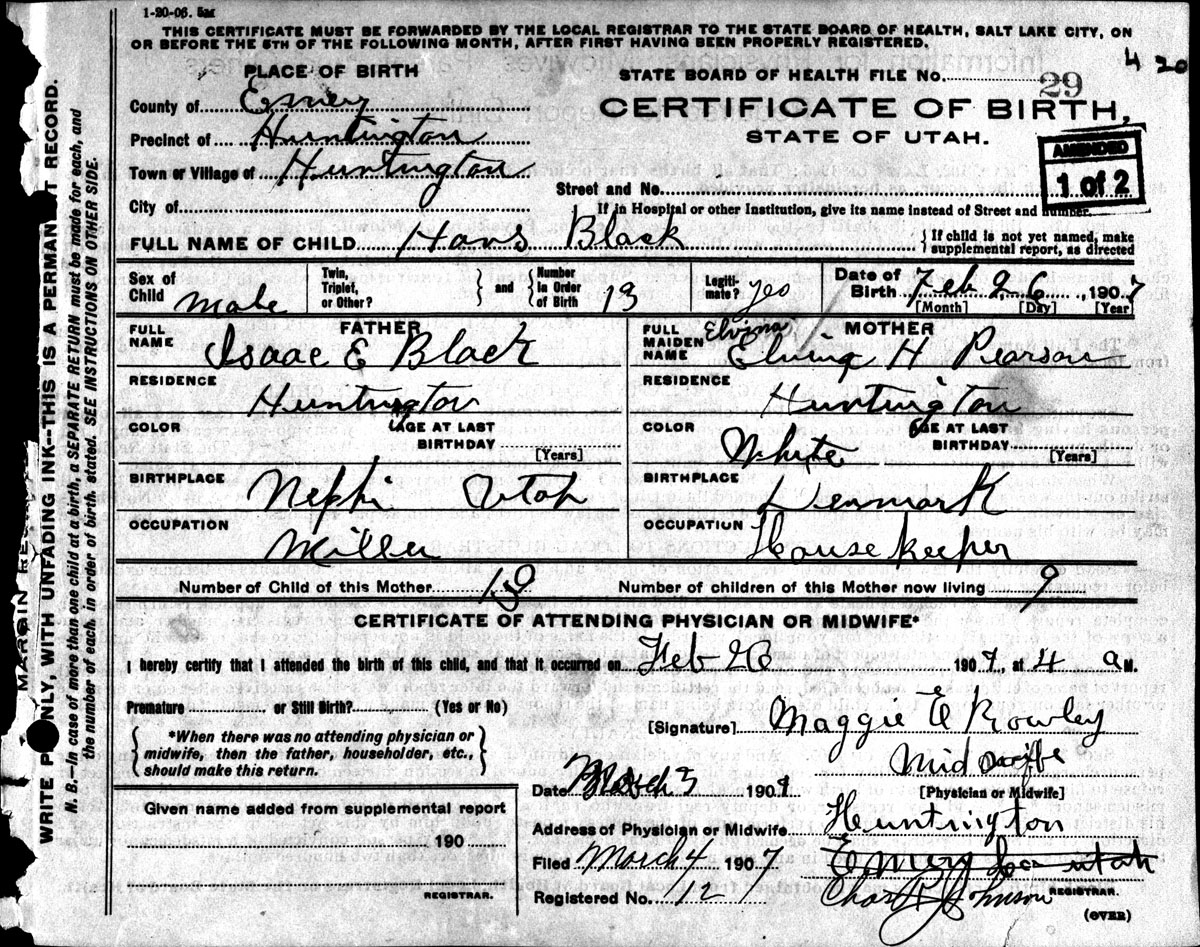 1-20-06. 5m
THIS CERTIFICATE MUST BE FORWARDED BY THE LOCAL REGISTRAR TO THE STATE BOARD OF HEALTH, SALT LAKE CITY, ON
OR BEFORE THE 5TH OF THE FOLLOWING MONTH, AFTER FIRST HAVING BEEN PROPERLY REGISTERED.
4 20
PLACE OF BIRTH
STATE BOARD OF HEALTH FILE NO. 29
County of Emery
CERTIFICATE OF BIRTH,
Precinct of Huntington
STATE OF UTAH.
AMENDED
1 of 2
Town or Village of Huntington
Street and No.
City of
If in Hospital or other Institution, give its name instead of Street and number.
FULL NAME OF CHILD Hans Black
{ If child is not yet named, make
supplemental report, as directed
Sex of Child Male
Twin, Triplet, or Other?
{ } and { Number in Order of Birth 13
Legiti-mate? yes
Date of Birth Feb 26, 1907
[Month] [Day] [Year]
FATHER
FULL NAME Isaac E Black
RESIDENCE
Huntington
COLOR
AGE AT LAST BIRTHDAY
[Years]
BIRTHPLACE Nephi Utah
OCCUPATION
Miller
MOTHER
FULL MAIDEN NAME Elvina H Pearson
Elvina
RESIDENCE
Huntington
COLOR White
AGE AT LAST BIRTHDAY
[Years]
BIRTHPLACE
Denmark
OCCUPATION
House keeper
Number of Child of this Mother
Number of children of this Mother now living 9
CERTIFICATE OF ATTENDING PHYSICIAN OR MIDWIFE*
I hereby certify that I attended the birth of this child, and that it occurred on Feb 26 1907, at 4 a M.
Premature or Still Birth? (Yes or No)
[Signature] Maggie E Rowley
Midwife
[Physician or Midwife]
{ *When there was no attending physician or
midwife, then the father, householder, etc.,
should make this return. }
Date March 3 190
Address of Physician or Midwife Huntington
Emery Co Utah
Given name added from supplemental report
190
REGISTRAR.
Filed March 4 1907
Chas P Johnson
REGISTRAR.
Registered No. 127
(OVER)
MARGIN
WRITE ONLY, WITH UNFADING INK--THIS IS A PERMAN T RECORD.
N. B.—In case of more than one child at a birth, a SEPARATE RETURN must be made for each, and
the number of each, in order of birth, stated. SEE INSTRUCTIONS ON OTHER SIDE.